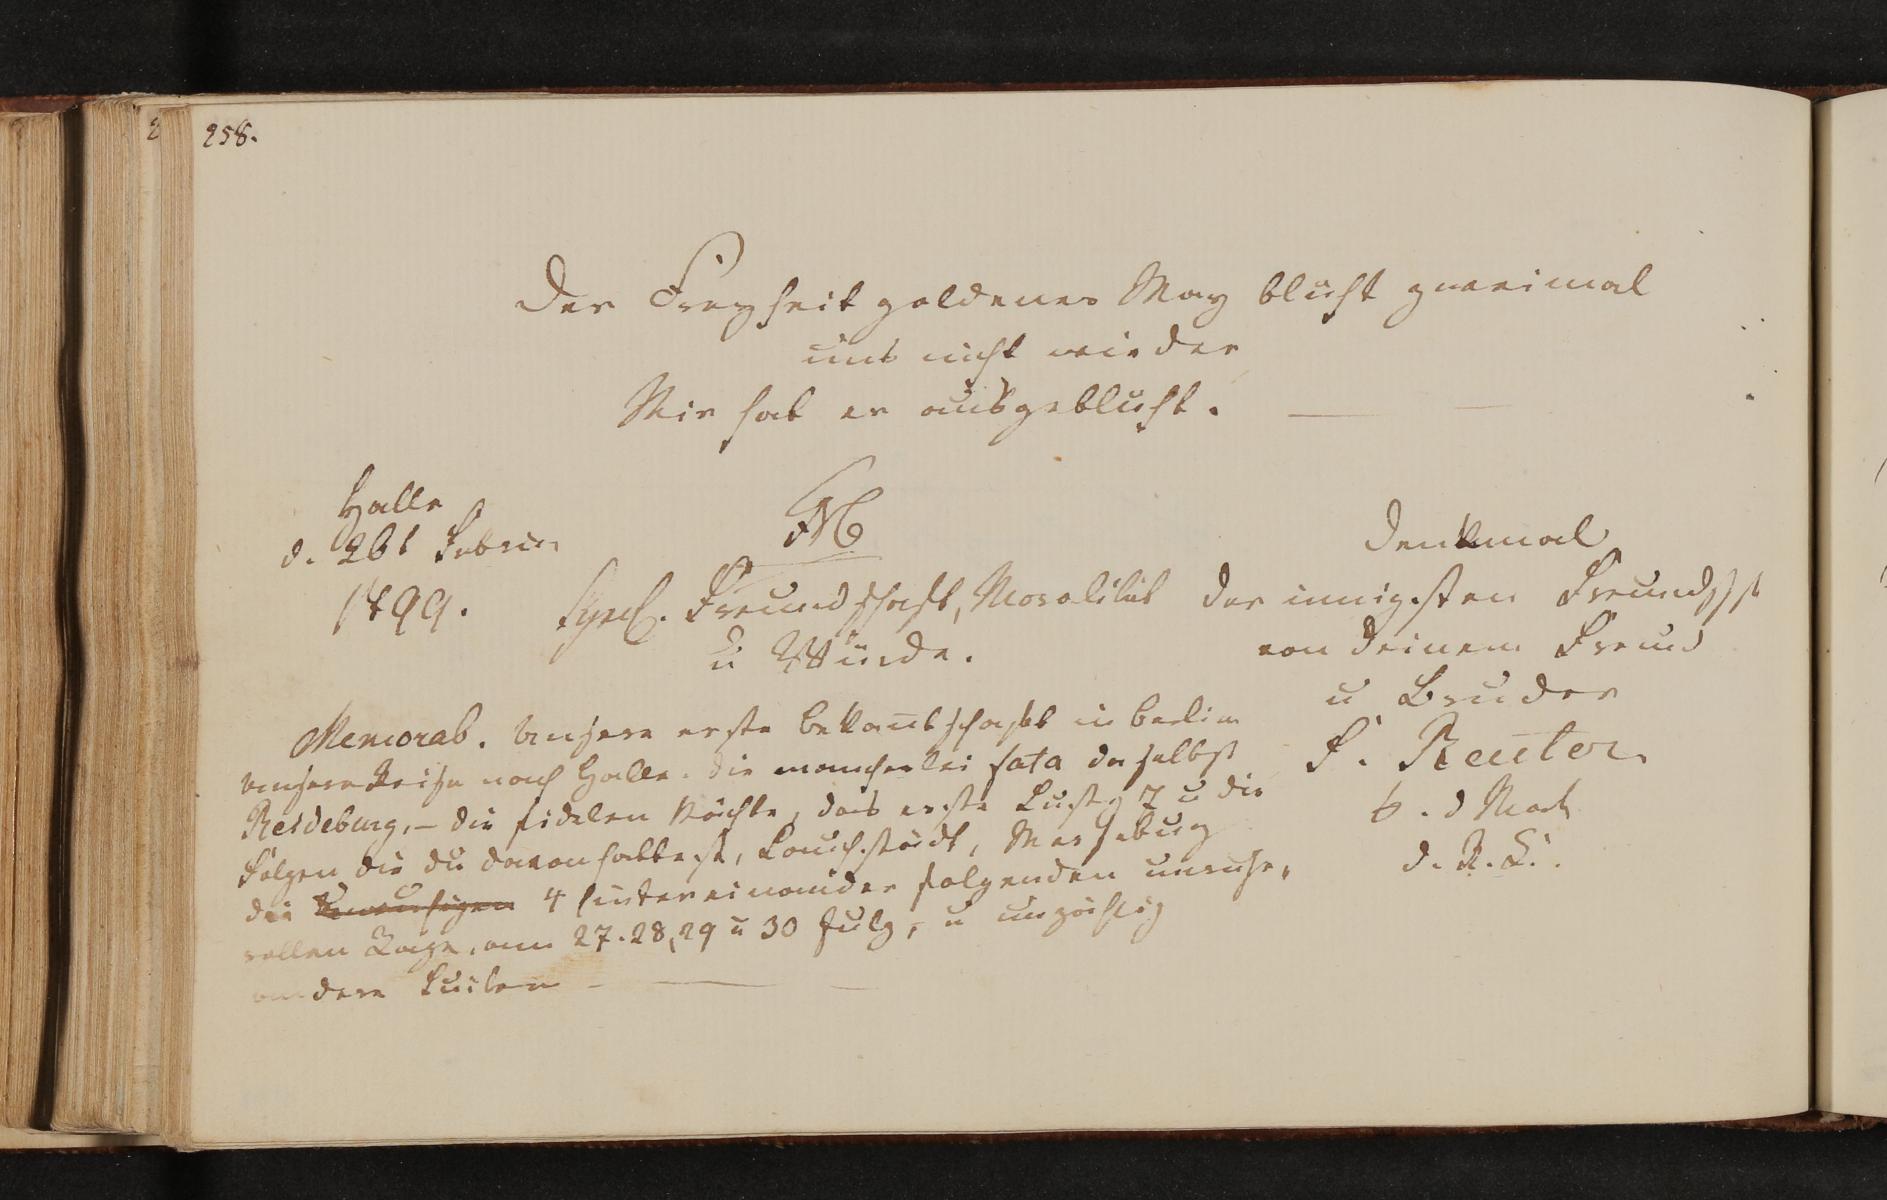 258.
Der Freyheit goldener May blüht zweimal
uns nicht wieder
Mir hat er ausgeblüht.
Halle
d. 26t Febru
1799.
Symb. Freundschaft, Moralität
u Würde.
Denkmal
der innigsten Freundsch
von deinem Freund
u Bruder
F. Reuter
b. d Mark
d. R. b.
Memorab. Unsere erste Bekantschaft in Berlin
unsere Reise nach Halle. Die mancherlei fata daselbst
Reideburg, – die fidelen Nächte, das erste Lustg 7 u die
Folgen die du davon hattest, Lauchstädt, Merseburg
die 4 hintereinander folgenden unruhe„
vollen Tage, am 27. 28, 29 u 30 July, u unzählig
andere Suiten – — –